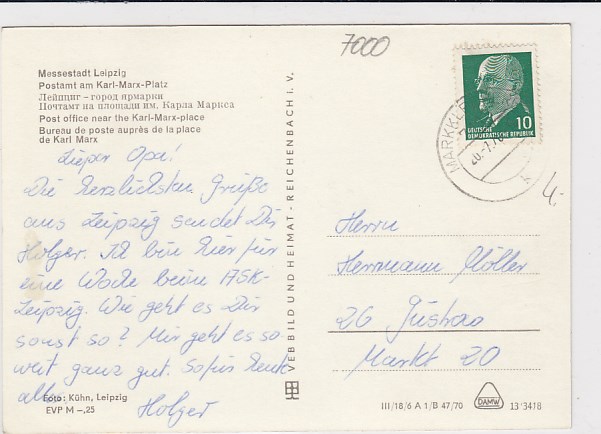 7000
Messestadt Leipzig
Postamt am Karl-Marx-Platz
Лейпциг – город ярмарки
Почтамт на площади им. Карла Маркса
Post office near the Karl-Marx-place
Bureau de poste auprès de la place
de Karl Marx
Lieber Opa!
Die herzlichsten Grüße
aus Leipzig sendet Dir
Holger. Ich bin hier für
eine Woche beim ASK-
Leipzig. Wie geht es Dir
sonst so? Mir geht es so
weit ganz gut. So für heute
alles
Holger
Foto: Kühn, Leipzig
EVP M –,25
VEB BILD UND HEIMAT · REICHENBACH i. V.
10
DEUTSCHE
DEMOKRATISCHE REPUBLIK
MARKKLE
20.-7.70
4.-
Herrn
Herrmann Möller
26 Güstrow
Markt 20
III/18/6 A 1/B 47/70
DAMW
13'3418